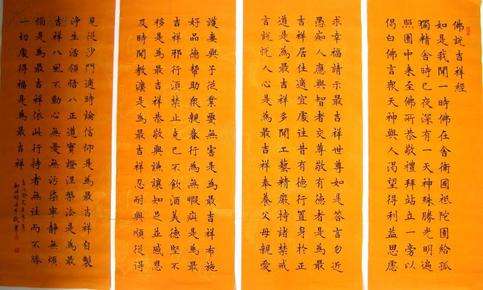 佛說吉祥經
如是我聞一時佛在舍衛國祇陀園給孤
獨精舍時已夜深有一天神殊勝光明遍
照園中來至佛所恭敬禮拜站立一旁以
偈白佛言眾天神與人渴望得利益思慮
求幸福請示最吉祥世尊如是答言勿近
愚癡人應與智者交尊敬有德者是為最
吉祥居住適宜處往昔有德行置身於正
道是為最吉祥多聞工藝精嚴持諸禁戒
言談悅人心是為最吉祥奉養父母親愛
護妻與子從業要無害是為最吉祥布施
好品德幫助眾親眷行為無瑕疵是為最
吉祥邪行須禁止克己不飲酒美德堅不
移是為最吉祥恭敬與謙讓知足並感恩
及時聞教法是為最吉祥忍耐與順從得
見從沙門適時論信仰是為最吉祥自製
淨生活領悟八正道實證涅槃法是為最
吉祥八風不動心無憂無污染寧靜無煩
惱是為最吉祥依此行持者無往而不勝
一切處得福是為最吉祥